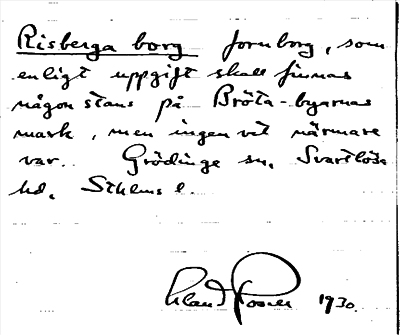 Risberga borg fornborg, som
enligt uppgift skall finnas
någonstans på Bröta-byarnas
mark, men ingen vet närmare
var. Grödinge sn, Svartlösa
hd, Sthlms l.
1930.